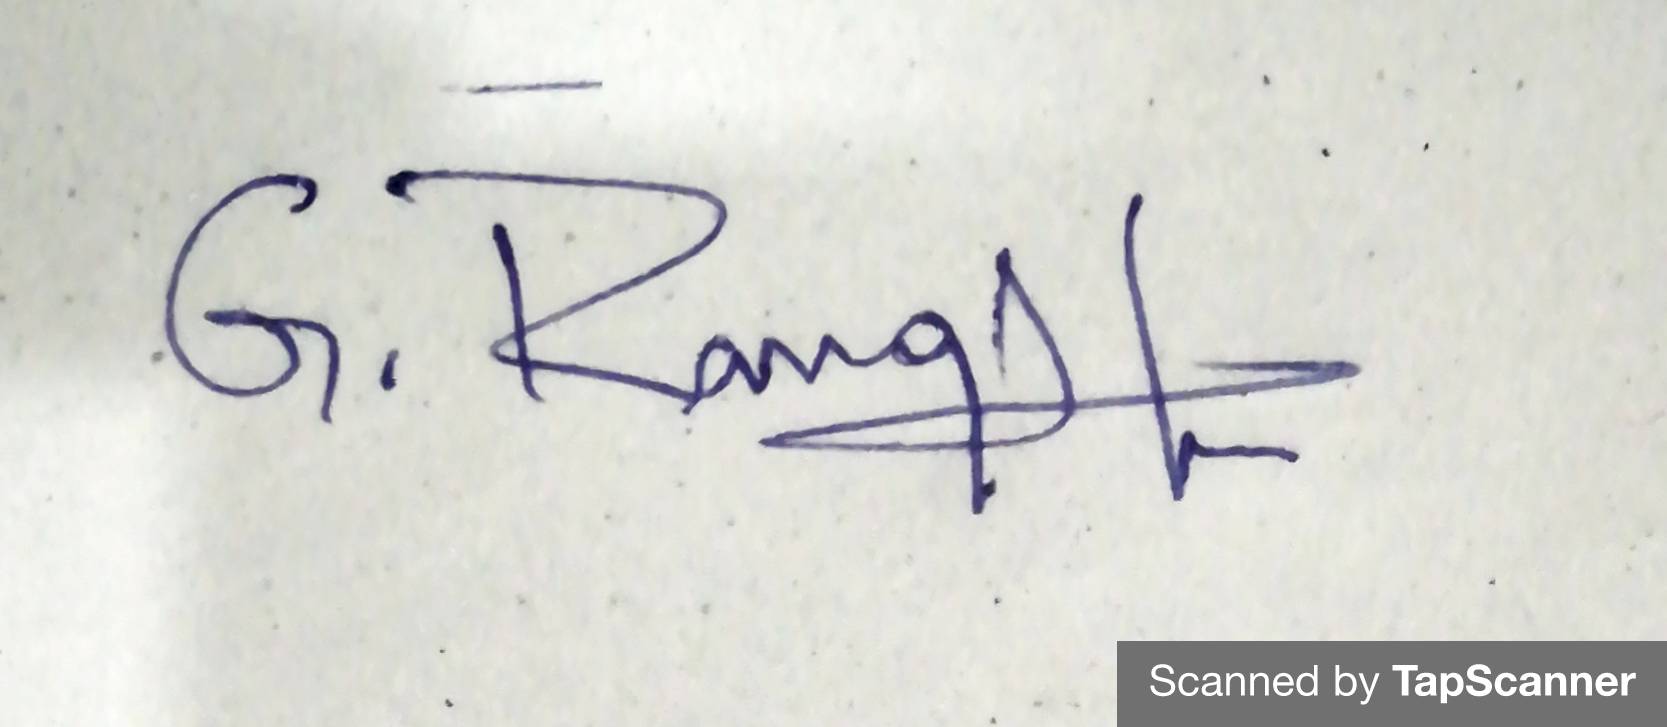 G. Rang
Scanned by TapScanner